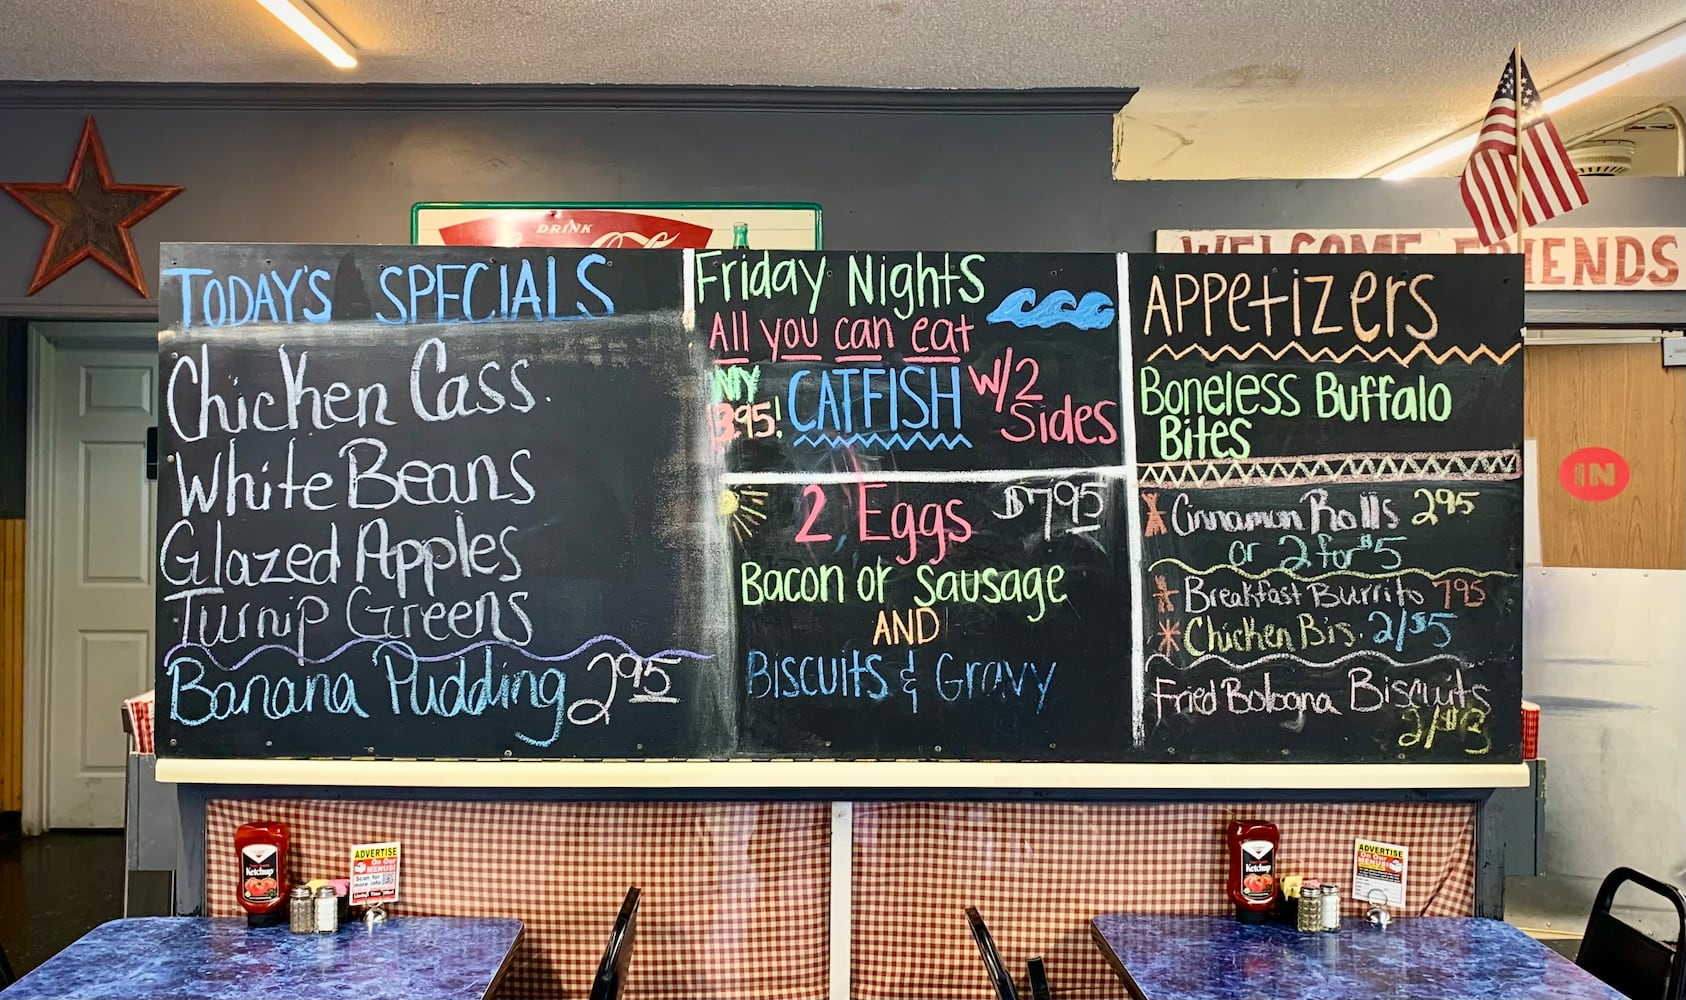 DRINK
WELCOME FRIENDS
TODAY'S SPECIALS
Chicken Cass.
White Beans
Glazed Apples
Turnip Greens
Banana Pudding 2 95
Friday Nights
All you can eat
CATFISH w/2 Sides
95!
2 Eggs $7 95
Bacon or Sausage
AND
Biscuits & Gravy
APPetizers
Boneless Buffalo
Bites
Cinnamon Rolls 2 95
or 2 for $5
Breakfast Burrito 7 95
Chicken Bis. 2/$5
Fried Bologna Biscuits
2/$3
IN
Ketchup
ADVERTISE
On Our
MENUS!
Scan for
more info
Ketchup
ADVERTISE
On Our
MENUS!